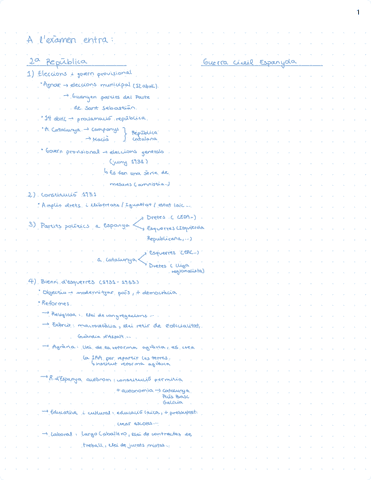 1
A l'exàmen entra:
2ª República
Guerra Civil Espanyola
1) Eleccions i govern provisional
* Aznar → eleccions municipal (12 abril)
→ Guanyen partits del Pacte
de Sant Sebastián.
* 14 abril → proclamació república
* A Catalunya → Companys
→ Macià
República
Catalana
* Govern provisional → eleccions generals
(juny 1931)
→ Es fan una sèrie de
mesures (amnistia..)
2) Constitució 1931
* Amplis drets i llibertats / igualtat / estat laic...
3) Partits polítics a Espanya
Dretes ( CEDA..)
Esquerres (Esquerra
Republicana,..)
a Catalunya
Esquerres (ERC..)
Dretes ( Lliga
regionalista)
4) Bienni d'esquerres (1931-1933)
* Objectiu → modernitzar país, + democràcia
* Reformes
→ Religiosa : llei de congregacions...
→ Exèrcit : llei retir
→ Agrària : llei de la reforma agrària, es crea
la IRA per repartir les terres.
↳ institut reforma agrària
→ E. d'Espanya autònom : constitució permetia
+ autonomia → Catalunya
País Basc
Galícia
→ Educativa i cultural : educació laica, +
→ Laboral : Largo Caballero, llei de contractes de
treball, llei de jurats mixtos...